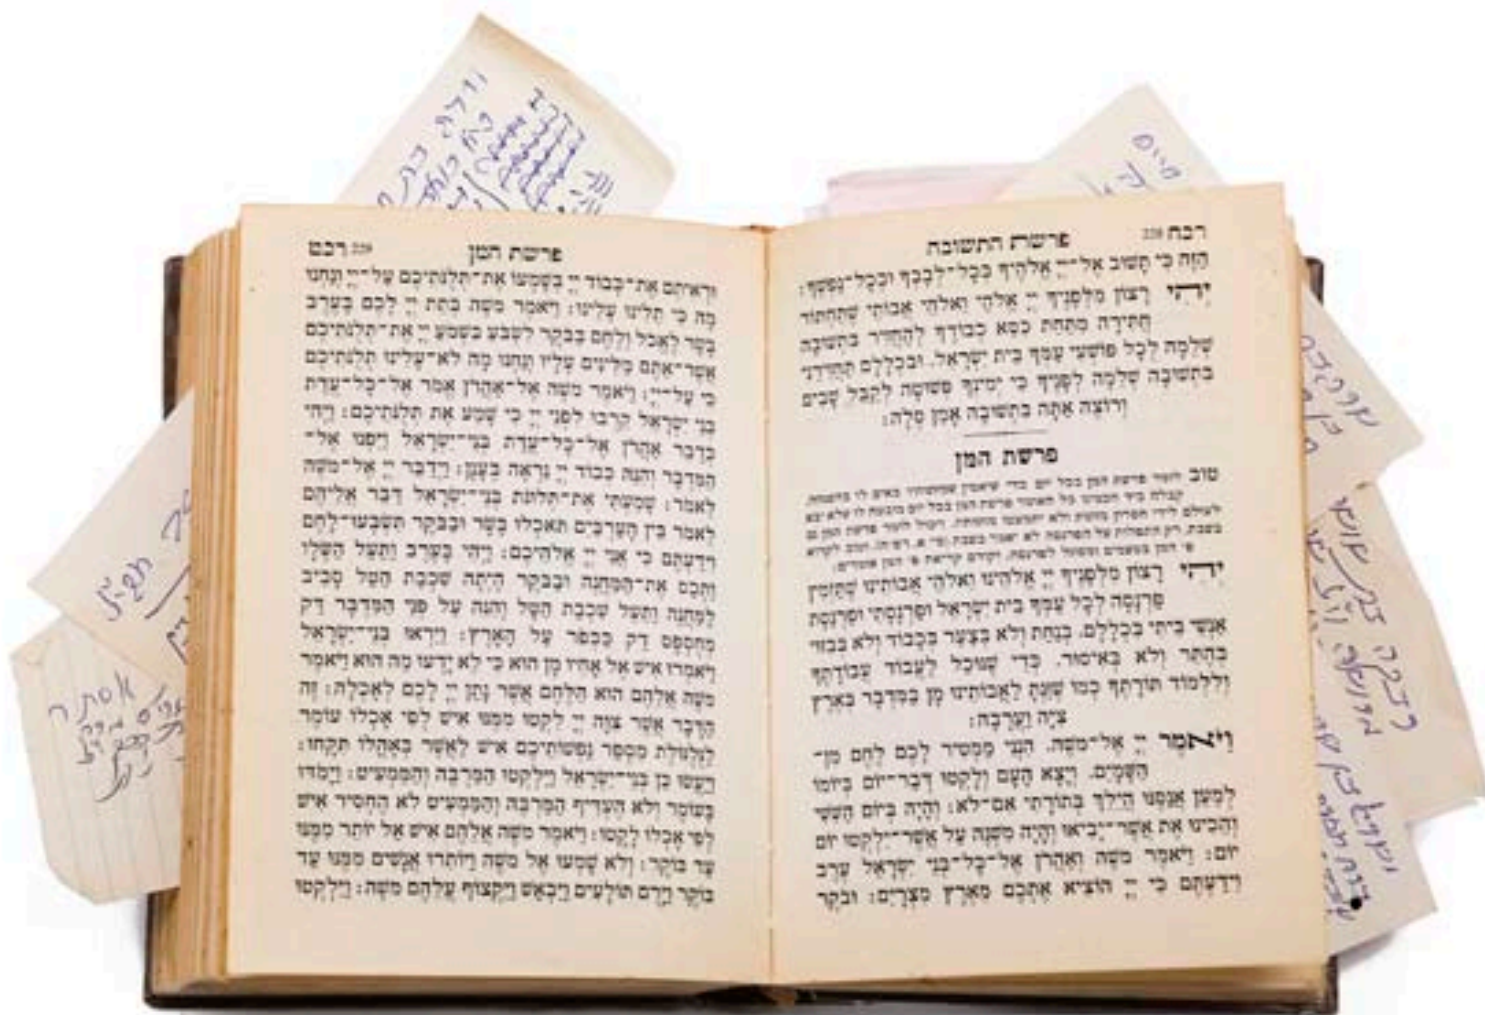 רכח 228
פרשת התשובה
הַזֶּה כִּי תָשׁוּב אֶל־יְיָ אֱלֹהֶיךָ בְּכָל־לְבָבְךָ וּבְכָל־נַפְשֶׁךָ:
יְהִי רָצוֹן מִלְּפָנֶיךָ יְיָ אֱלֹהַי וֵאלֹהֵי אֲבוֹתַי שֶׁתַּחְתּוֹר
חֲתִירָה מִתַּחַת כִּסֵּא כְבוֹדֶךָ לְהַחֲזִיר בִּתְשׁוּבָה
שְׁלֵמָה לְכָל פּוֹשְׁעֵי עַמְּךָ בֵּית יִשְׂרָאֵל. וּבִכְלָלָם תַּחֲזִירֵנִי
בִּתְשׁוּבָה שְׁלֵמָה לְפָנֶיךָ כִּי יְמִינְךָ פְּשׁוּטָה לְקַבֵּל שָׁבִים
וְרוֹצֶה אַתָּה בִּתְשׁוּבָה אָמֵן סֶלָה:
פרשת המן
טוב לומר פרשת המן בכל יום כדי שיאמין שמזונותיו באים לו בהשגחה,
קבלה ביד חכמינו כל האומר פרשת המן בכל יום מובטח לו שלא יבא
לעולם לידי חסרון מזונות
בשבת, רק התפלות על הפרנסה לא יאמר בשבת
פ׳ המן בטעמים ומסוגל לפרנסה, וקודם קריאת פ׳ המן אומרים:
יְהִי רָצוֹן מִלְּפָנֶיךָ יְיָ אֱלֹהֵינוּ וֵאלֹהֵי אֲבוֹתֵינוּ שֶׁתַּזְמִין
פַּרְנָסָה לְכָל עַמְּךָ בֵּית יִשְׂרָאֵל וּפַרְנָסָתִי וּפַרְנָסַת
אַנְשֵׁי בֵיתִי בִּכְלָלָם. בְּנַחַת וְלֹא בְּצַעַר בְּכָבוֹד וְלֹא בְּבִזּוּי
בְּהֶתֵּר וְלֹא בְּאִיסוּר. כְּדֵי שֶׁנּוּכַל לַעֲבוֹד עֲבוֹדָתֶךָ
וְלִלְמוֹד תּוֹרָתֶךָ כְּמוֹ שֶׁזַּנְתָּ לַאֲבוֹתֵינוּ מָן בַּמִּדְבָּר בְּאֶרֶץ
צִיָּה וַעֲרָבָה:
וַיֹּאמֶר יְיָ אֶל־מֹשֶׁה. הִנְנִי מַמְטִיר לָכֶם לֶחֶם מִן־
הַשָּׁמָיִם. וְיָצָא הָעָם וְלָקְטוּ דְּבַר־יוֹם בְּיוֹמוֹ
לְמַעַן אֲנַסֶּנּוּ הֲיֵלֵךְ בְּתוֹרָתִי אִם־לֹא: וְהָיָה בַּיּוֹם הַשִּׁשִּׁי
וְהֵכִינוּ אֵת אֲשֶׁר־יָבִיאוּ וְהָיָה מִשְׁנֶה עַל אֲשֶׁר־יִלְקְטוּ יוֹם
יוֹם: וַיֹּאמֶר מֹשֶׁה וְאַהֲרֹן אֶל־כָּל־בְּנֵי יִשְׂרָאֵל עֶרֶב
וִידַעְתֶּם כִּי יְיָ הוֹצִיא אֶתְכֶם מֵאֶרֶץ מִצְרָיִם: וּבֹקֶר
פרשת המן
229 רכט
וּרְאִיתֶם אֶת־כְּבוֹד יְיָ בְּשָׁמְעוֹ אֶת־תְּלֻנֹּתֵיכֶם עַל־יְיָ וְנַחְנוּ
מָה כִּי תַלִּינוּ עָלֵינוּ: וַיֹּאמֶר מֹשֶׁה בְּתֵת יְיָ לָכֶם בָּעֶרֶב
בָּשָׂר לֶאֱכֹל וְלֶחֶם בַּבֹּקֶר לִשְׂבֹּעַ בִּשְׁמֹעַ יְיָ אֶת־תְּלֻנֹּתֵיכֶם
אֲשֶׁר־אַתֶּם מַלִּינִים עָלָיו וְנַחְנוּ מָה לֹא־עָלֵינוּ תְלֻנֹּתֵיכֶם
כִּי עַל־יְיָ: וַיֹּאמֶר מֹשֶׁה אֶל־אַהֲרֹן אֱמֹר אֶל־כָּל־עֲדַת
בְּנֵי יִשְׂרָאֵל קִרְבוּ לִפְנֵי יְיָ כִּי שָׁמַע אֵת תְּלֻנֹּתֵיכֶם: וַיְהִי
כְּדַבֵּר אַהֲרֹן אֶל־כָּל־עֲדַת בְּנֵי־יִשְׂרָאֵל וַיִּפְנוּ אֶל־
הַמִּדְבָּר וְהִנֵּה כְּבוֹד יְיָ נִרְאָה בֶּעָנָן: וַיְדַבֵּר יְיָ אֶל־מֹשֶׁה
לֵּאמֹר: שָׁמַעְתִּי אֶת־תְּלוּנֹת בְּנֵי־יִשְׂרָאֵל דַּבֵּר אֲלֵיהֶם
לֵאמֹר בֵּין הָעַרְבַּיִם תֹּאכְלוּ בָשָׂר וּבַבֹּקֶר תִּשְׂבְּעוּ־לָחֶם
וִידַעְתֶּם כִּי אֲנִי יְיָ אֱלֹהֵיכֶם: וַיְהִי בָעֶרֶב וַתַּעַל הַשְּׂלָו
וַתְּכַס אֶת־הַמַּחֲנֶה וּבַבֹּקֶר הָיְתָה שִׁכְבַת הַטַּל סָבִיב
לַמַּחֲנֶה וַתַּעַל שִׁכְבַת הַטָּל וְהִנֵּה עַל פְּנֵי הַמִּדְבָּר דַּק
מְחֻסְפָּס דַּק כַּכְּפֹר עַל הָאָרֶץ: וַיִּרְאוּ בְנֵי־יִשְׂרָאֵל
וַיֹּאמְרוּ אִישׁ אֶל אָחִיו מָן הוּא כִּי לֹא יָדְעוּ מַה הוּא וַיֹּאמֶר
מֹשֶׁה אֲלֵהֶם הוּא הַלֶּחֶם אֲשֶׁר נָתַן יְיָ לָכֶם לְאָכְלָה: זֶה
הַדָּבָר אֲשֶׁר צִוָּה יְיָ לִקְטוּ מִמֶּנּוּ אִישׁ לְפִי אָכְלוֹ עוֹמֶר
לַגֻּלְגּוֹלֶת מִסְפַּר נַפְשׁוֹתֵיכֶם אִישׁ לַאֲשֶׁר בְּאָהֳלוֹ תִּקָּחוּ:
וַיַּעֲשׂוּ כֵן בְּנֵי־יִשְׂרָאֵל וַיִּלְקְטוּ הַמַּרְבֶּה וְהַמַּמְעִיט: וַיָּמֹדּוּ
בָעוֹמֶר וְלֹא הֶעְדִּיף הַמַּרְבֶּה וְהַמַּמְעִיט לֹא הֶחְסִיר אִישׁ
לְפִי אָכְלוֹ לָקָטוּ: וַיֹּאמֶר מֹשֶׁה אֲלֵהֶם אִישׁ אַל יוֹתֵר מִמֶּנּוּ
עַד בּוֹקֶר: וְלֹא שָׁמְעוּ אֶל מֹשֶׁה וַיּוֹתִרוּ אֲנָשִׁים מִמֶּנּוּ עַד
בּוֹקֶר וַיָּרֻם תּוֹלָעִים וַיִּבְאַשׁ וַיִּקְצוֹף עֲלֵהֶם מֹשֶׁה: וַיִּלְקְטוּ
חיים
רבקה בת
אסתר